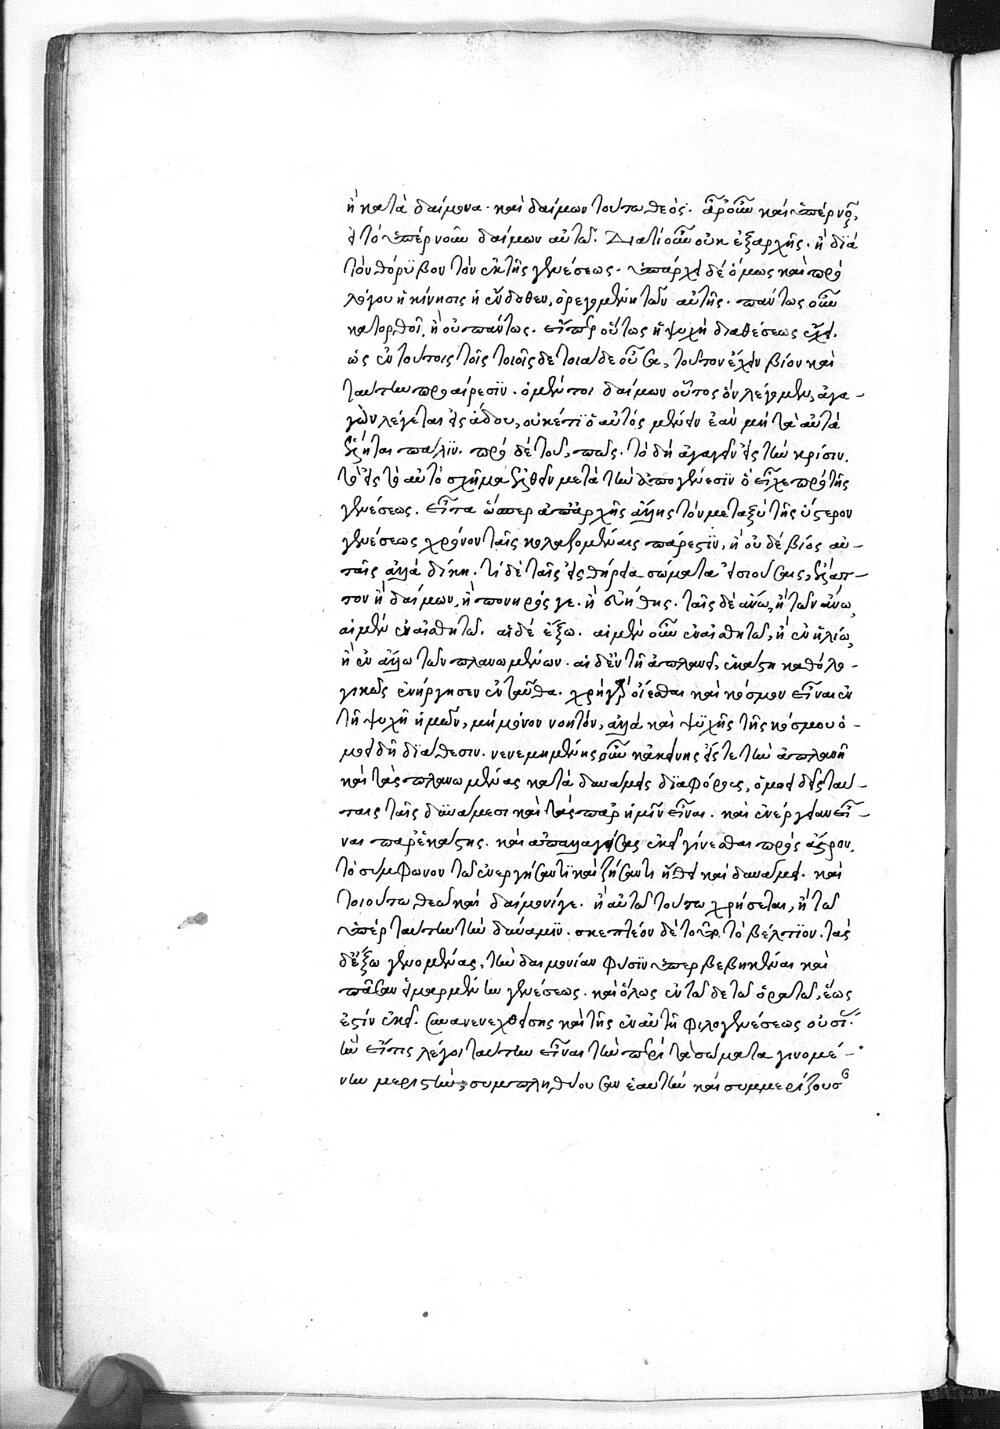 ἢ κατὰ δαίμονα· καὶ δαίμων τούτω θεός. ἆρ' οὖν καὶ ὑπὲρ νοῦν,
εἰ τὸ ὑπὲρ νοῦν δαίμων αὐτῶ. Διατί οὖν οὐκ ἐξαρχῆς. ἢ διὰ
τὸν θόρυβον τὸν ἐκ τῆς γενέσεως. ὑπάρχει δὲ ὅμως καὶ πρὸ
λόγου ἡ κίνησις ἡ ἔνδοθεν, ὀρεγομένη τῶν αὐτῆς. πάντως οὖν
κατορθοῖ, ἢ οὐ πάντως. εἴπερ οὕτως ἡ ψυχὴ διαθέσεως ἔχει.
ὡς ἐν τούτοις τοῖς τοιοῖσδε τοιάδε οὖσα, τοῦτον ἔχειν βίον καὶ
ταύτην προαίρεσιν. ὁ μέντοι δαίμων οὗτος ὃν λέγομεν, ἀγα-
γὼν λέγεται εἰς ἅδου, οὐκέτι ὁ αὐτὸς μένειν ἐὰν μὴ τὰ αὐτὰ
ἕληται πάλιν. πρὸ δὲ τοῦ, πῶς. τὸ δὴ ἀγαγεῖν εἰς τὴν κρίσιν.
τὸ εἰς τὸ αὐτὸ σχῆμα ἐλθεῖν μετὰ τὴν ἀπογένεσιν ὃ εἶχε πρὸ τῆς
γενέσεως. εἶτα ὥσπερ ἀπ' ἀρχῆς ἄλλης τὸν μεταξὺ τῆς ὕστερον
γενέσεως χρόνον ταῖς κολαζομέναις πάρεστιν, ἢ οὐδὲ βίος αὐ-
ταῖς ἀλλὰ δίκη. τί δὲ ταῖς εἰς θήρεια σώματα εἰσιούσαις, ἔλατ-
τον ἢ δαίμων, ἢ πονηρός γε. ἢ εὐήθης. ταῖς δὲ ἄνω, ἢ τῶν ἄνω,
αἱ μὲν ἐν αἰσθητῶ. αἱ δὲ ἔξω. αἱ μὲν οὖν ἐν αἰσθητῶ, ἢ ἐν ἡλίω,
ἢ ἐν ἄλλω τῶν πλανωμένων. αἱ δ' ἐν τῇ ἀπλανεῖ, ἑκάστη καθὸ λο-
γικῶς ἐνήργησεν ἐνταῦθα. χρὴ γὰρ οἴεσθαι καὶ κόσμον εἶναι ἐν
τῇ ψυχῇ ἡμῶν, μὴ μόνον νοητόν, ἀλλὰ καὶ ψυχῆς τῆς κόσμου ὁ-
μοειδῆ διάθεσιν. νενεμημένης οὖν κἀκείνης εἴς τε τὴν ἀπλανῆ
καὶ τὰς πλανωμένας κατὰ δυνάμεις διαφόρους, ὁμοειδεῖς ταύ-
ταις ταῖς δυνάμεσι καὶ τὰς παρ' ἡμῖν εἶναι. καὶ ἐνέργειαν εἶ-
ναι παρ' ἑκάστης. καὶ ἀπαλλαγείσας ἐκεῖ γίνεσθαι πρὸς ἄστρον.
τὸ σύμφωνον τῶ ἐνεργήσαντι καὶ ζήσαντι ἤθει καὶ δυνάμει. καὶ
τοιούτω θεῶ καὶ δαίμονί γε. ἢ αὐτῶ τούτω χρήσεται, ἢ τῶ
ὑπὲρ ταύτην τὴν δύναμιν. σκεπτέον δὲ τοῦτο τὸ βέλτιον. τὰς
δ' ἔξω γενομένας, τὴν δαιμονίαν φύσιν ὑπερβεβηκέναι καὶ
πᾶσαν εἱμαρμένην γενέσεως. καὶ ὅλως ἐν τῶδε τῶ ὁρατῶ, ἕως
ἐστὶν ἐκεῖ. συνανενεχθείσης καὶ τῆς ἐν αὐτῇ φιλογενέσεως οὐσί-
ἣν εἴ τις λέγοι ταύτην εἶναι τὴν περὶ τὰ σώματα γινομέ-
νην μεριστήν, συμπληθύουσαν ἑαυτὴν καὶ συμμερίζουσα